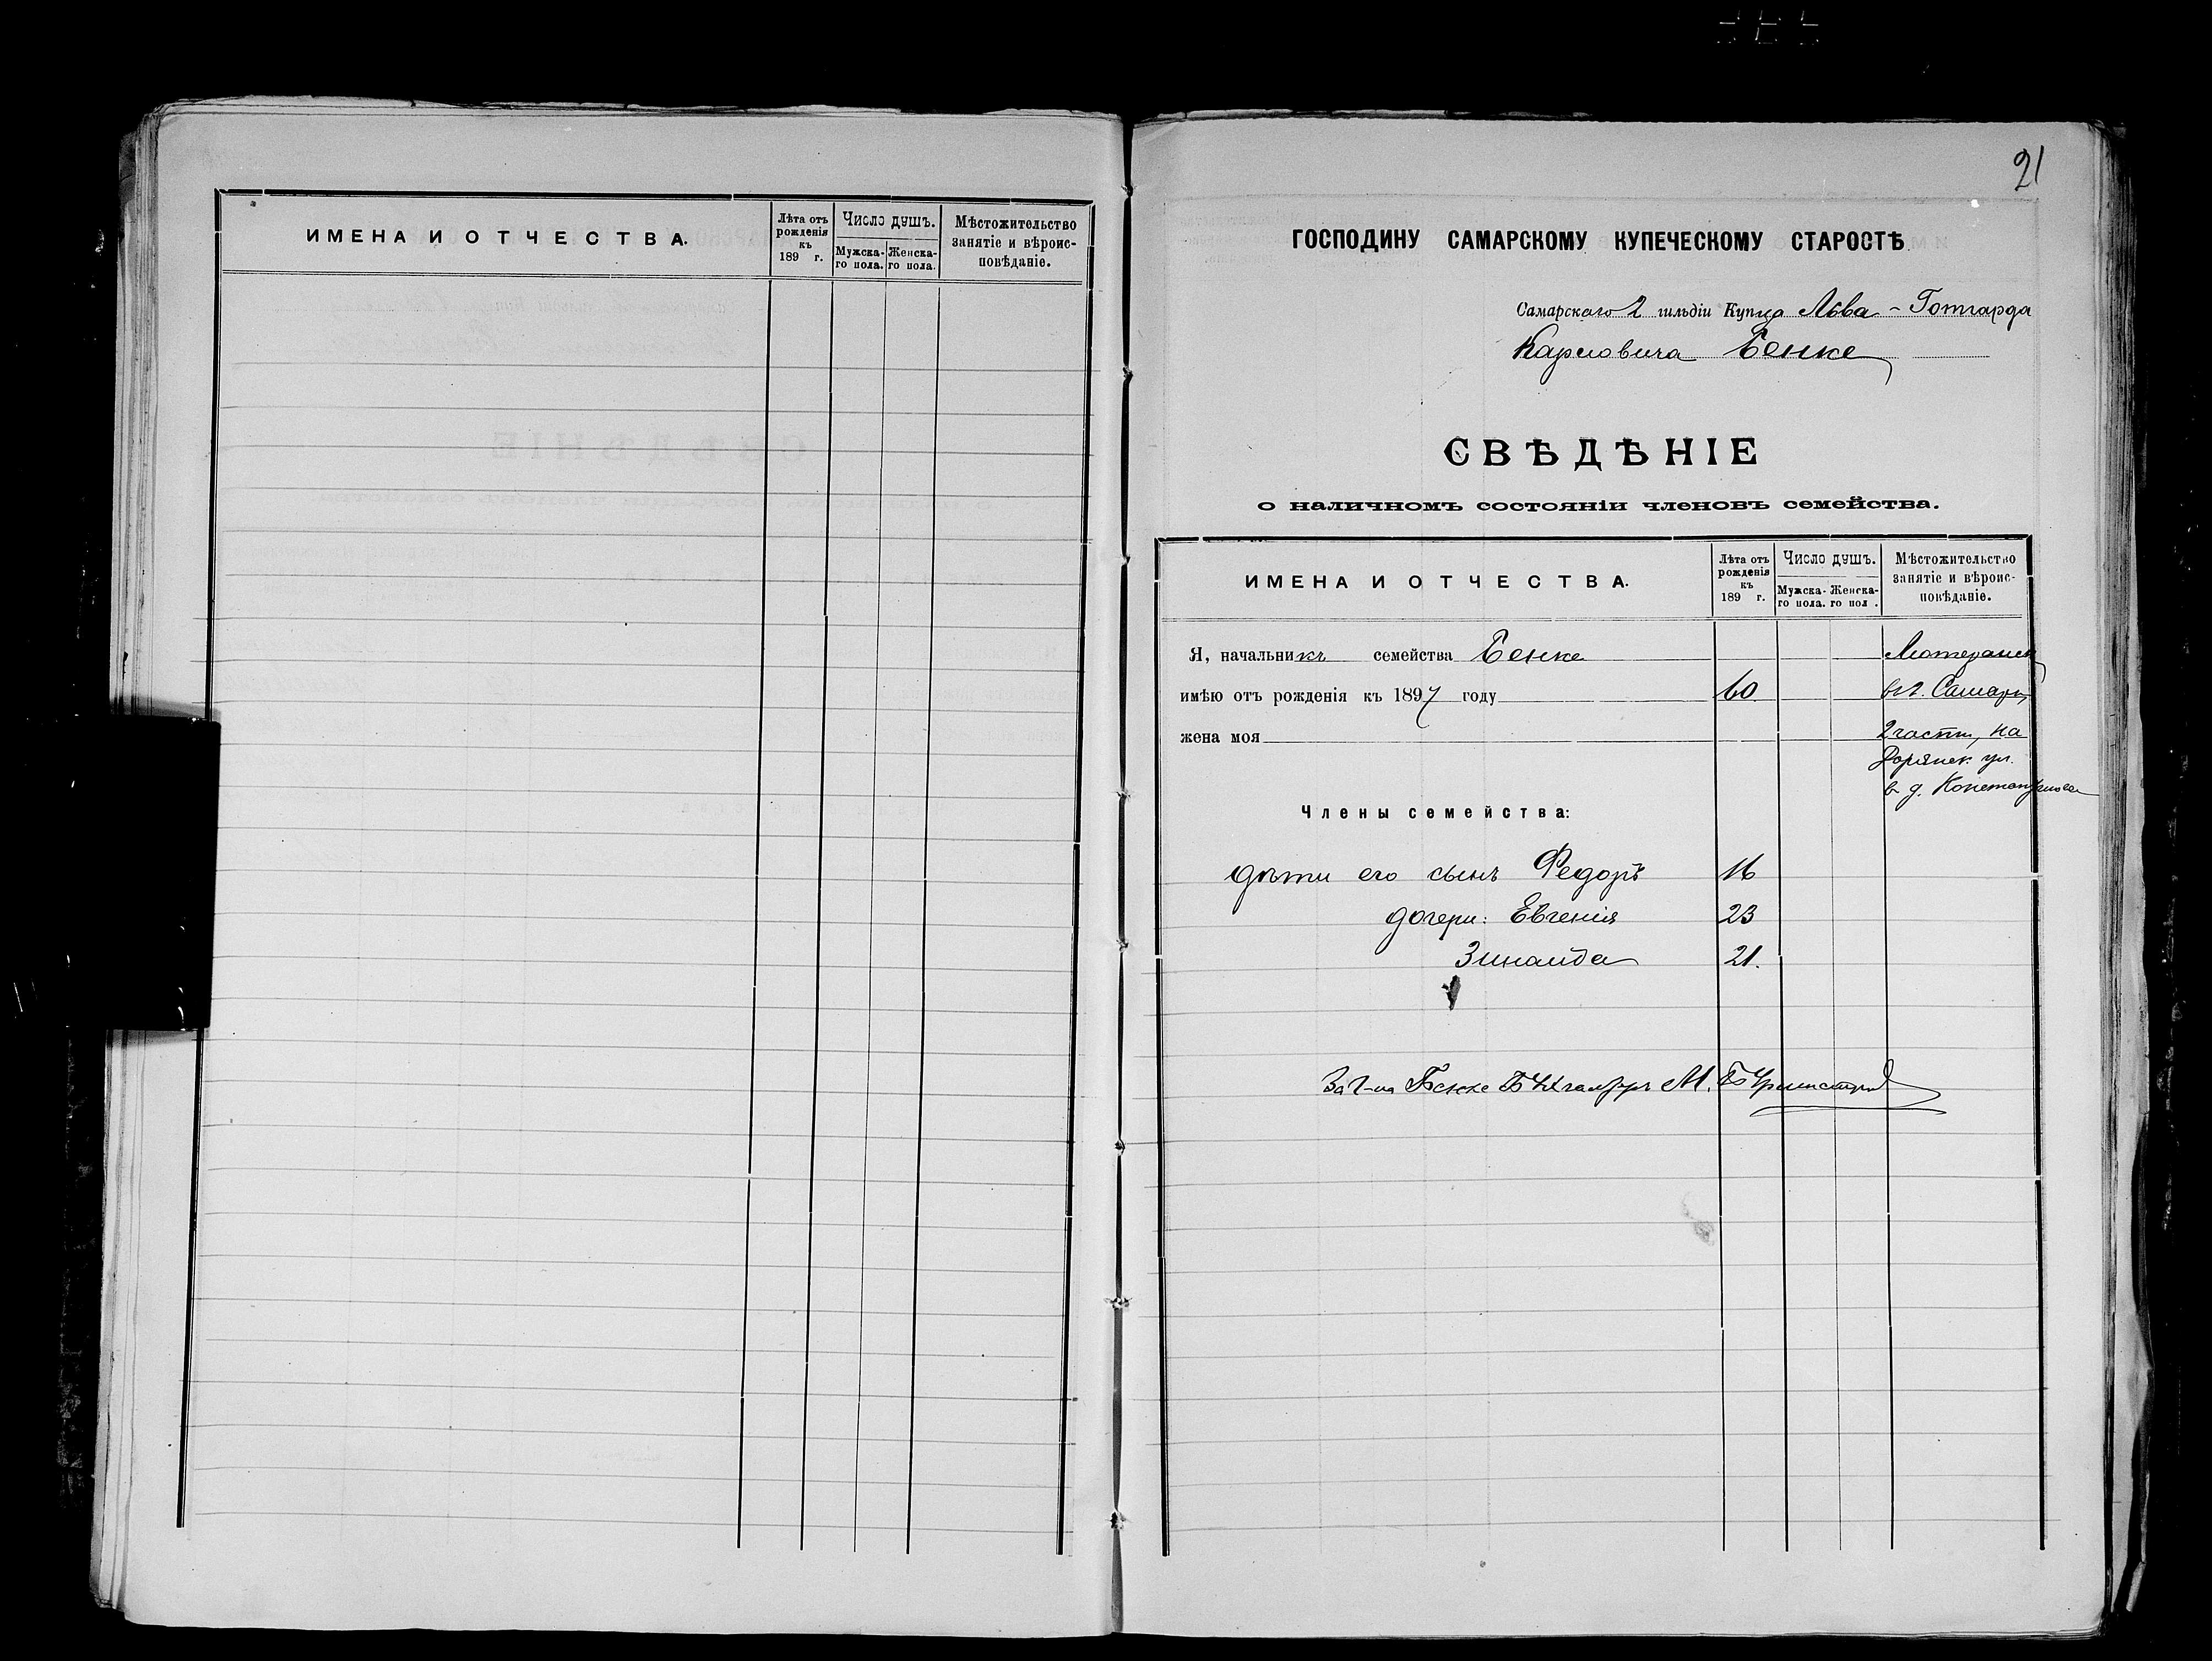 ИМЕНА И ОТЧЕСТВА.
Лѣта отъ рожденія къ 189 г.
Число душъ.
Мужска-го пола.
Женска-го пола.
Мѣстожительство занятіе и вѣроис-повѣданіе.
21
ГОСПОДИНУ САМАРСКОМУ КУПЕЧЕСКОМУ СТАРОСТѢ
Самарскаго 2 гильдіи Купца Льва-Готгарда
Карловича Бенке
СВѢДѢНІЕ
о наличномъ состояніи членовъ семейства.
ИМЕНА И ОТЧЕСТВА.
Лѣта отъ рожденія къ 189 г.
Число душъ.
Мужска-го пола.
Женска-го пол .
Мѣстожительство занятіе и вѣроис-повѣданіе.
Я, начальникъ семейства Бенке
имѣю отъ рожденія къ 1897 году 60
жена моя
Лютеранск
въ г. Самарѣ,
2 части, на
Дворянск. ул.
в д. Константинова
Члены семейства:
дѣти его сынъ Федоръ 16
дочери: Евгенія 23
Зинаида 21.
За г-на Бенке М.